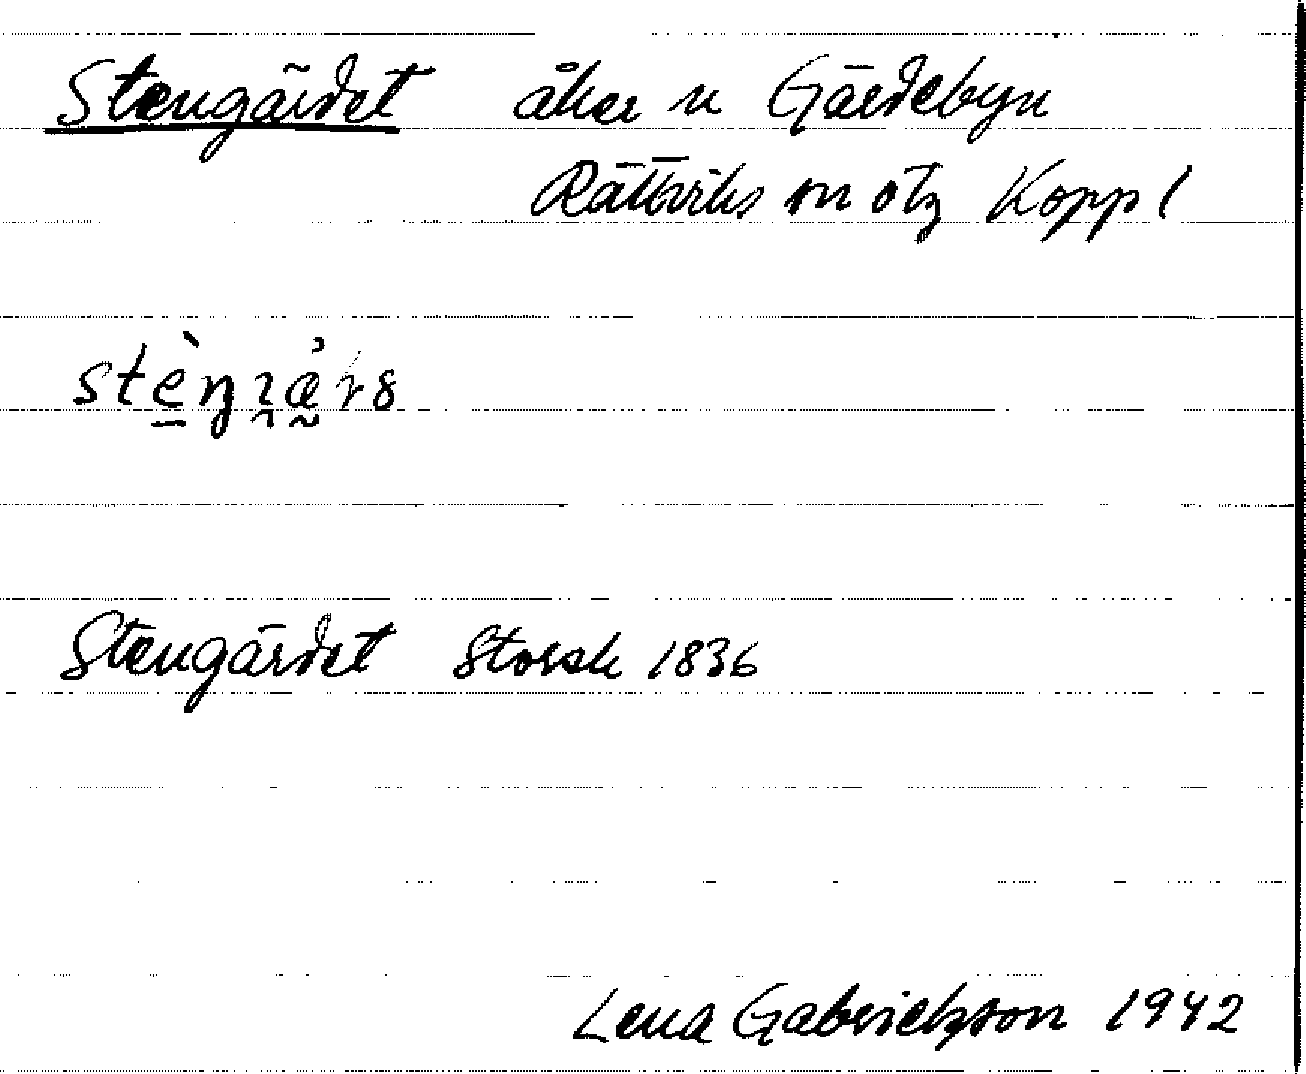 Stengärdet åker n Gärdebyn
Rättviks sn o tg Kopp l
Stengärdet Storsk 1836
Lena Gabrielsson 1942